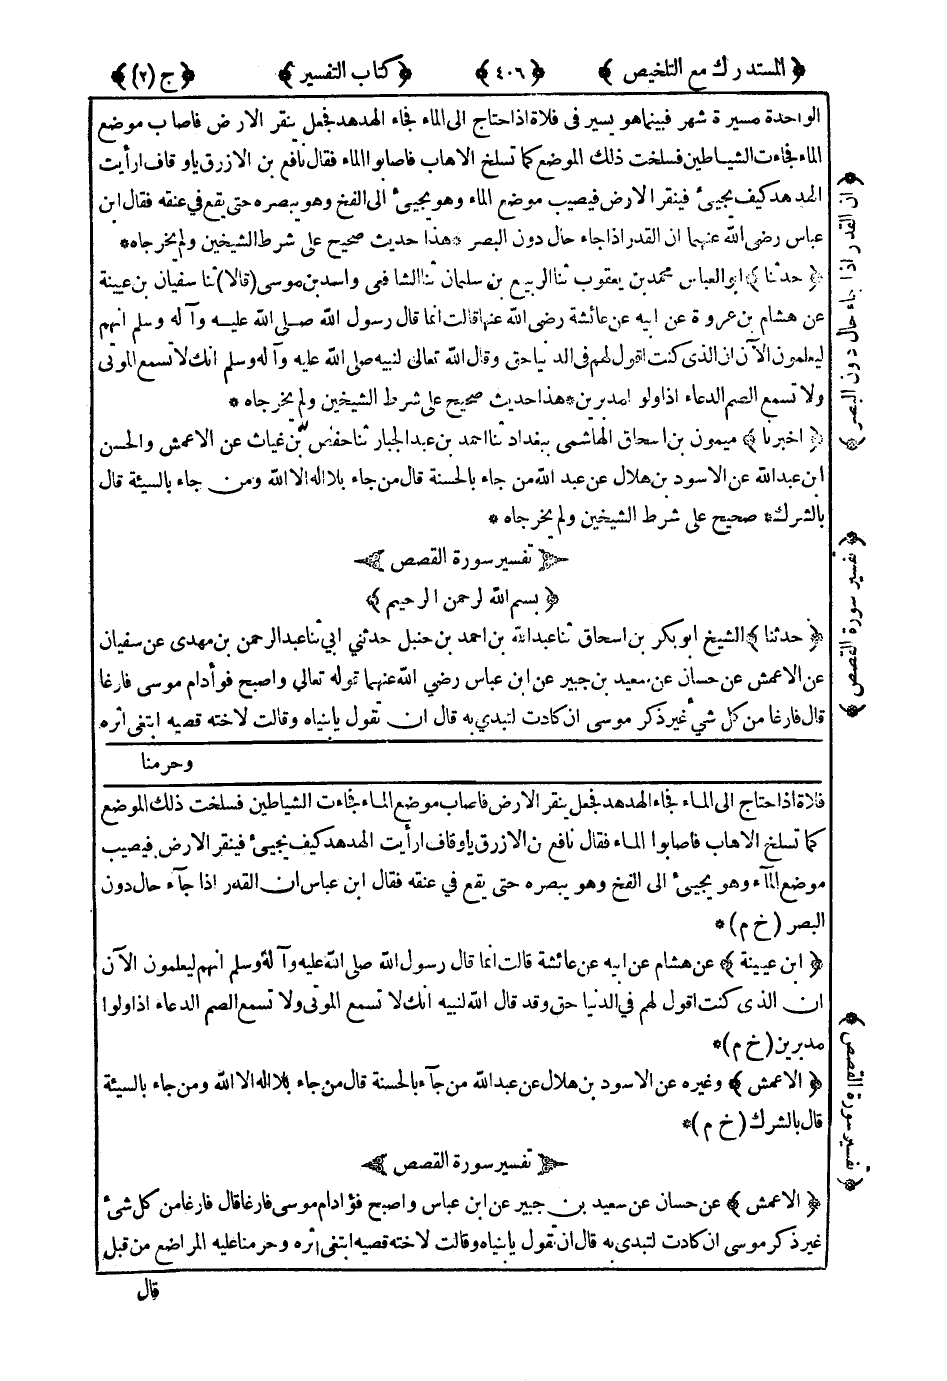 ﴿ المستدرك مع التلخيص ﴾ ﴿ ٤٠٦ ﴾ ﴿ كتاب التفسير ﴾ ﴿ ج (٢) ﴾
الواحدة مسيرة شهر فبينما هو يسير فى فلاة اذا حتاج الى الماء فجاء الهدهد فجعل ينقر الارض فاصاب موضع
الماء فجاءت الشياطين فسلخت ذلك الموضع كما تسلخ الاهاب فاصابوا الماء فقال نافع بن الازرق ياوقاف ارأيت
الهدهد كيف يجيئ فينقر الارض فيصيب موضع الماء وهو يجيئ الى الفخ وهو يبصره حتى يقع في عنقه فقال ابن
عباس رضى الله عنهما ان القدر اذا جاء حال دون البصر * هذا حديث صحيح على شرط الشيخين ولم يخرجاه *
﴿ حدثنا ﴾ ابو العباس محمد بن يعقوب ثنا الربيع بن سلمان ثنا الشافعى واسد بن موسى (قالا) ثنا سفيان بن عيينة
عن هشام بن عروة عن ابيه عن عائشة رضى الله عنها قالت انما قال رسول الله صلى الله عليه وآله وسلم انهم
ليعلمون الآن ان الذى كنت اقول لهم فى الدنيا حق وقال الله تعالى لنبيه صلى الله عليه وآله وسلم انك لا تسمع الموتى
ولا تسمع الصم الدعاء اذا ولوا مدبرين * هذا حديث صحيح على شرط الشيخين ولم يخرجاه *
﴿ اخبرنا ﴾ ميمون بن اسحاق الهاشمى ببغداد ثنا احمد بن عبد الجبار ثنا حفص بن غياث عن الاعمش والحسن
ابن عبد الله عن الاسود بن هلال عن عبد الله من جاء بالحسنة قال من جاء بلا اله الا الله ومن جاء بالسيئة قال
بالشرك * صحيح على شرط الشيخين ولم يخرجاه *
تفسير سورة القصص
﴿ بسم الله لرحمن الرحيم ﴾
﴿ حدثنا ﴾ الشيخ ابو بكر بن اسحاق ثنا عبد الله بن احمد بن حنبل حدثني ابي ثنا عبد الرحمن بن مهدى عن سفيان
عن الاعمش عن حسان عن سعيد بن جبير عن ابن عباس رضي الله عنهما قوله تعالى واصبح فوأدام موسى فارغا
قال فارغا من كل شيء غير ذكر موسى ان كادت لتبدي به قال ان تقول يابنياه وقالت لاخته قصيه ابتغى اثره
وحرمنا
فلاة اذا حتاج الى الماء فجاء الهدهد فجعل ينقر الارض فاصاب موضع الماء فجاءت الشياطين فسلخت ذلك الموضع
كما تسلخ الاهاب فاصابوا الماء فقال نافع بن الازرق ياوقاف ارأيت الهدهد كيف يجيئ فينقر الارض فيصيب
موضع المآء وهو يجيئ الى الفخ وهو يبصره حتى يقع في عنقه فقال ابن عباس ان القدر اذا جآء حال دون
البصر (خ م) *
﴿ ابن عيينة ﴾ عن هشام عن ابيه عن عائشة قالت انما قال رسول الله صلى الله عليه وآله وسلم انهم ليعلمون الآن
ان الذى كنت اقول لهم في الدنيا حق وقد قال الله لنبيه انك لا تسمع الموتى ولا تسمع الصم الدعاء اذا ولوا
مدبرين (خ م) *
﴿ الاعمش ﴾ وغيره عن الاسود بن هلال عن عبد الله من جآء بالحسنة قال من جاء بلا اله الا الله ومن جاء بالسيئة
قال بالشرك (خ م) *
تفسير سورة القصص
﴿ الاعمش ﴾ عن حسان عن سعيد بن جبير عن ابن عباس واصبح فؤادام موسى فارغا قال فارغا من كل شئ
غير ذكر موسى ان كادت لتبدى به قال ان تقول يابنياه وقالت لاخته قصيه ابتغى اثره وحرمنا عليه المراضع من قبل
قال
﴿ ان القدر اذا جاء حال دون البصر ﴾
﴿ تفسير سورة القصص ﴾
﴿ تفسير سورة القصص ﴾